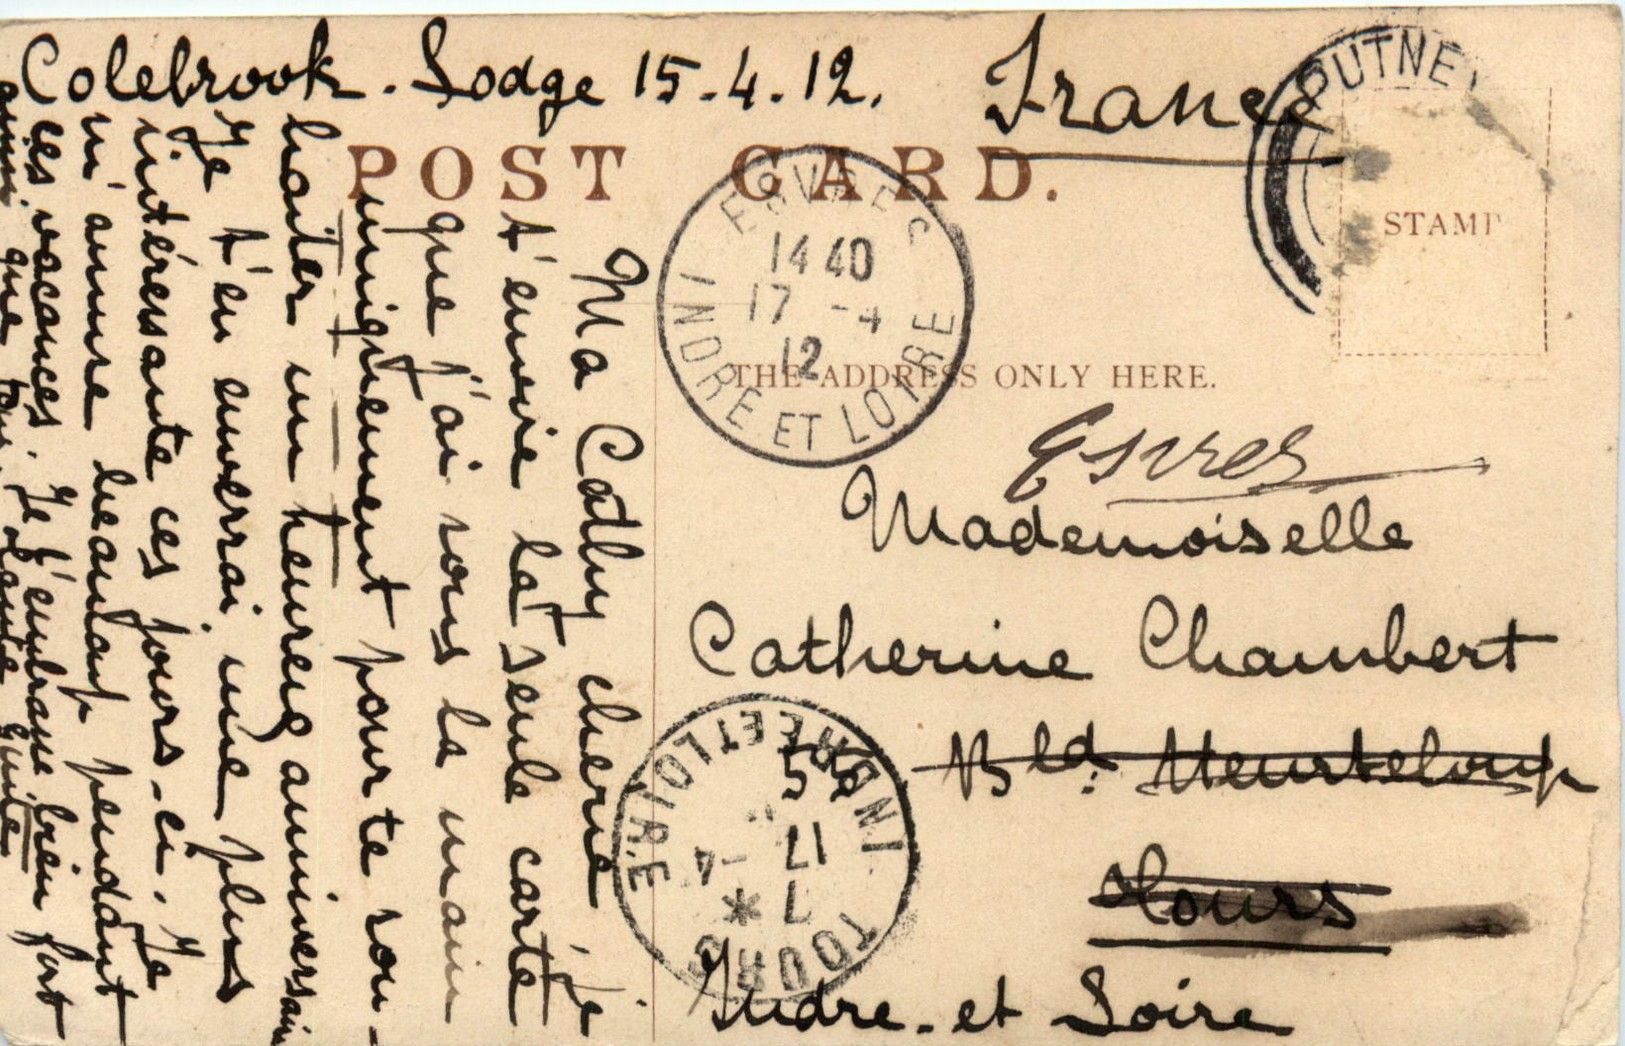 Colebrook. Lodge 15.4.12.
France
PUTNEY
POST CARD.
STAMP
THE ADDRESS ONLY HERE.
ESVRES
14 40
17 -4
12
INDRE ET LOIRE
Esvres
Mademoiselle
Catherine Chambert
Bld. Heurteloup
Tours
Indre-et Loire
TOURS
17 -4
INDRE ET LOIRE
Ma Cathy chérie, je
t'envoie la seule carte
que j'ai sous la main
uniquement pour te sou-
haiter un heureux anniversaire
Je t'en enverrai une plus
intéressante ces jours-ci. Je
m'amuse beaucoup pendant
ces vacances. Je t'embrasse bien fort
ainsi que